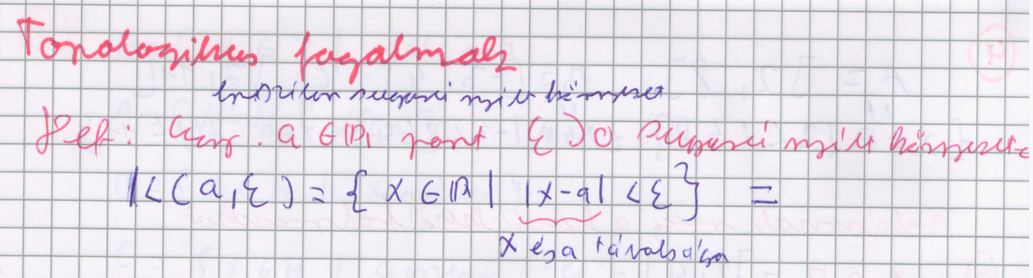 Topologikus fogalmak
epszilon sugarú nyílt környezet
Def: Egy a ∈ ℝ pont ε>0 sugarú nyílt környezete
K(a,ε) = { x ∈ ℝ | |x-a| < ε } =
x és a távolsága